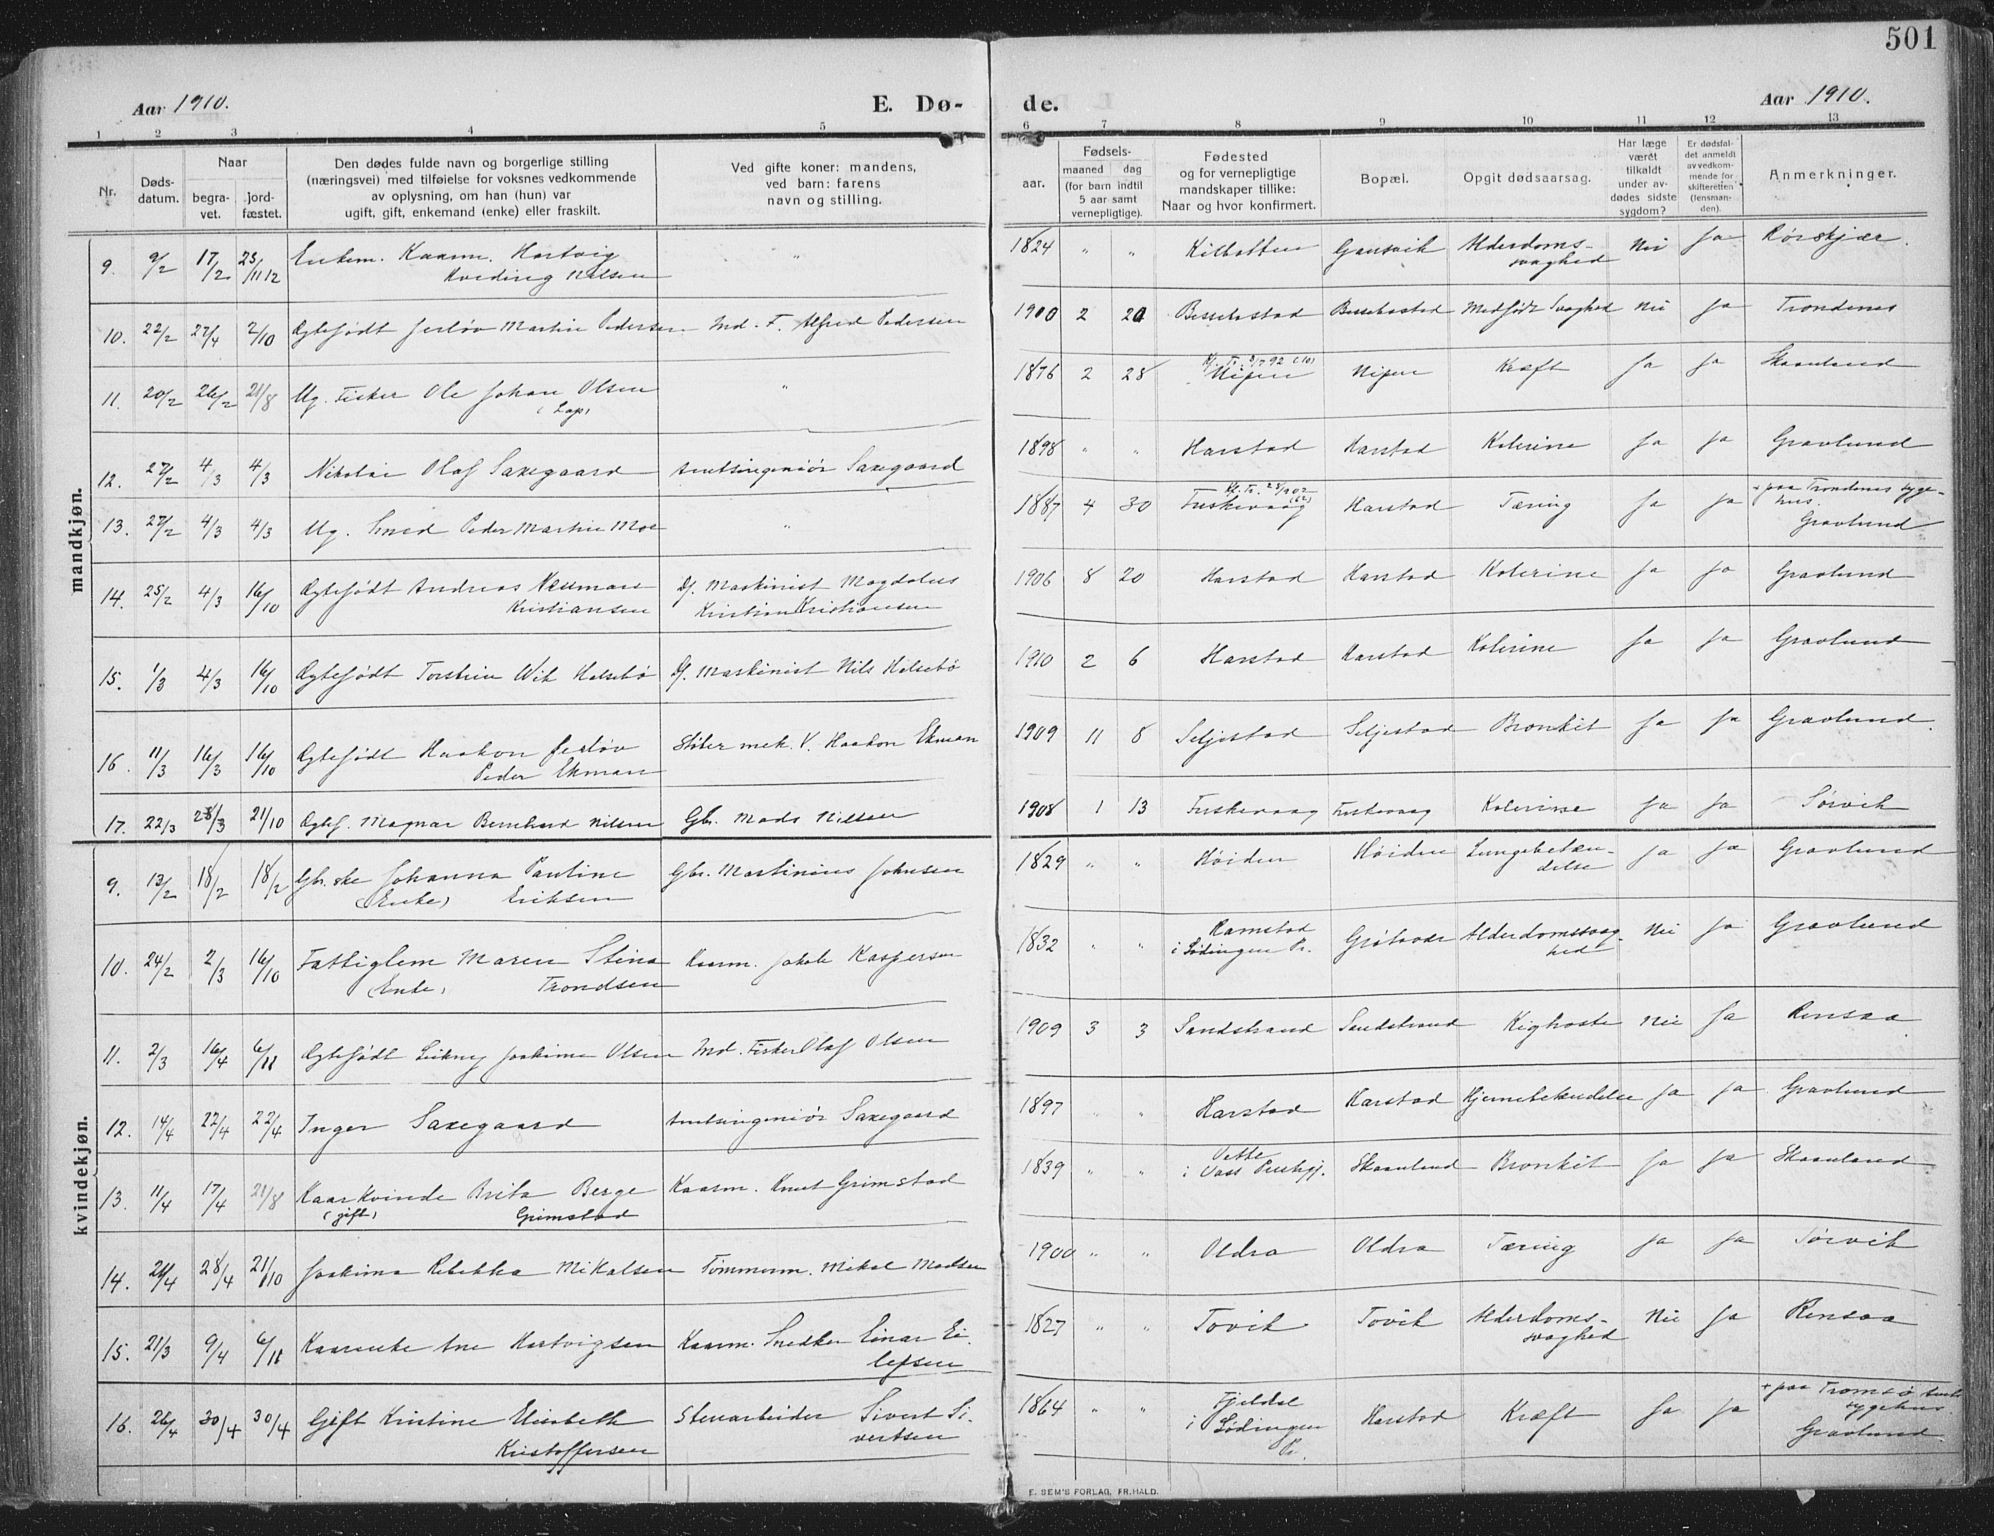 501
Aar 1910. E. Dø- de. Aar 1910.
1 2 3 4 5 6 7 8 9 10 11 12 13
Nr.
Døds-
datum.
Naar
begra-
vet.
jord-
fæstet.
Den dødes fulde navn og borgerlige stilling
(næringsvei) med tilføielse for voksnes vedkommende
av oplysning, om han (hun) var
ugift, gift, enkemand (enke) eller fraskilt.
Ved gifte koner: mandens,
ved barn: farens
navn og stilling.
aar.
Fødsels-
maaned dag
(for barn indtil
5 aar samt
vernepligtige).
Fødested
og for vernepligtige
mandskaper tillike:
Naar og hvor konfirmert.
Bopæl.
Opgit dødsaarsag.
Har læge
været
tilkaldt
under av-
dødes sidste
sygdom?
Er dødsfal-
det anmeldt
av vedkom-
mende for
skifteretten
(lensman-
den).
Anmerkninger.
mandkjøn.
9. 9/2 17/2 23/11 12 Enkem. Kaarm. Hartvig " 1824 " " Kilbotten Gansvik Alderdoms- Nei Ja Rørskjær.
Kveding Nilsen svaghed
10. 22/2 27/4 2/10 Egtefødt Jerløv Martin Pedersen Ind. F. Alfred Pedersen 1900 2 20 Bessebostad Medfødt Svaghed Nei Ja Trondenes
11. 20/2 26/2 21/8 Ug. Fisker Ole Johan Olsen " 1876 2 28 Nipen Nipen Kræft Ja Ja Skaanland
(Lap)
12. 27/2 4/3 4/3 Nikolai Olaf Saxegaard Amtsingeniør Saxegaard 1898 " " Harstad Harstad Kolerine Ja Ja Gravlund
13. 27/2 4/3 4/3 Ug. Smed Peder Martin Moe " 1887 4 30 Fuskevaag Harstad Tæring Ja Ja + paa Trondenes syge-
hus.
Gravlund
14. 25/2 4/3 16/10 Egtefødt Andreas Neuman Df. Maskinist Magdalus 1906 8 20 Harstad Harstad Kolerine Ja Ja Gravlund
Kristiansen Kristian Kristiansen
15. 1/3 4/3 16/10 Egtefødt Torstein Wik Helsebø Df. Maskinist Nils Helsebø 1910 2 6 Harstad Harstad Kolerine Ja Ja Gravlund
16. 11/3 16/3 16/10 Egtefødt Haakon Jerløv mek. V. Haakon Ekman 1909 11 8 Seljestad Seljestad Bronkit Ja Ja Gravlund
Peder Ekman
17. 22/3 21/10 Egtef. Magnar Bernhard Nilsen Gbr. Mads Nilsen 1908 1 13 Fuskevaag Fuskevaag Kolerine Ja Ja Sørvik
kvindekjøn.
9. 13/2 18/2 18/2 Gbr.ske Johanna Pauline Gbr. Martinius Johnsen 1829 " " Høiden Høiden Lungebetæn- Ja Ja Gravlund
(Enke) Eriksen delse
10. 24/2 2/3 16/10 Fattiglem Maren Stina Kaarm. Jakob Kaspersen 1832 " " Ramstad Alderdomssvag- Nei Ja Gravlund
(Enke) Trondsen i Lødingen Pr. hed
11. 2/3 16/4 6/11 Egtefødt Joakima Olsen Ind. Fisker Olaf Olsen 1909 3 3 Sandstrand Sandstrand Kighoste Nei Ja Rensaa
12. 14/4 22/4 22/4 Inger Saxegaard Amtsingeniør Saxegaard 1897 " " Harstad Harstad Hjernebetændelse Ja Ja Gravlund
13. 11/4 17/4 21/8 Kaarkvinde Brita Berge Kaarm. Knut Grimstad 1839 " " i Voss Skaanland Bronkit Ja Ja Skaanland
(gift) Grimstad
14. 28/4 21/10 Joakima Rebekka Mikalsen Tømmerm. Mikal Madsen 1900 " " Oldra Oldra Tæring Ja Ja Sørvik
15. 21/3 9/4 6/11 Kaarenke Ane Hartvigsen Kaarm. Snedker Einar Ei- 1827 " " Tovik Tovik Alderdoms- Nei Ja Rensaa
lefsen svaghed
16. 26/4 30/4 30/4 Gift Kristine Elisabeth Stenarbeider Sivert Si- 1864 " " Fjeldal Harstad Kræft Ja Ja + paa Tromsø
vertsen i Lødingen sygehus
Kristoffersen Pr. Gravlund
E. SEM'S FORLAG, FR.HALD.